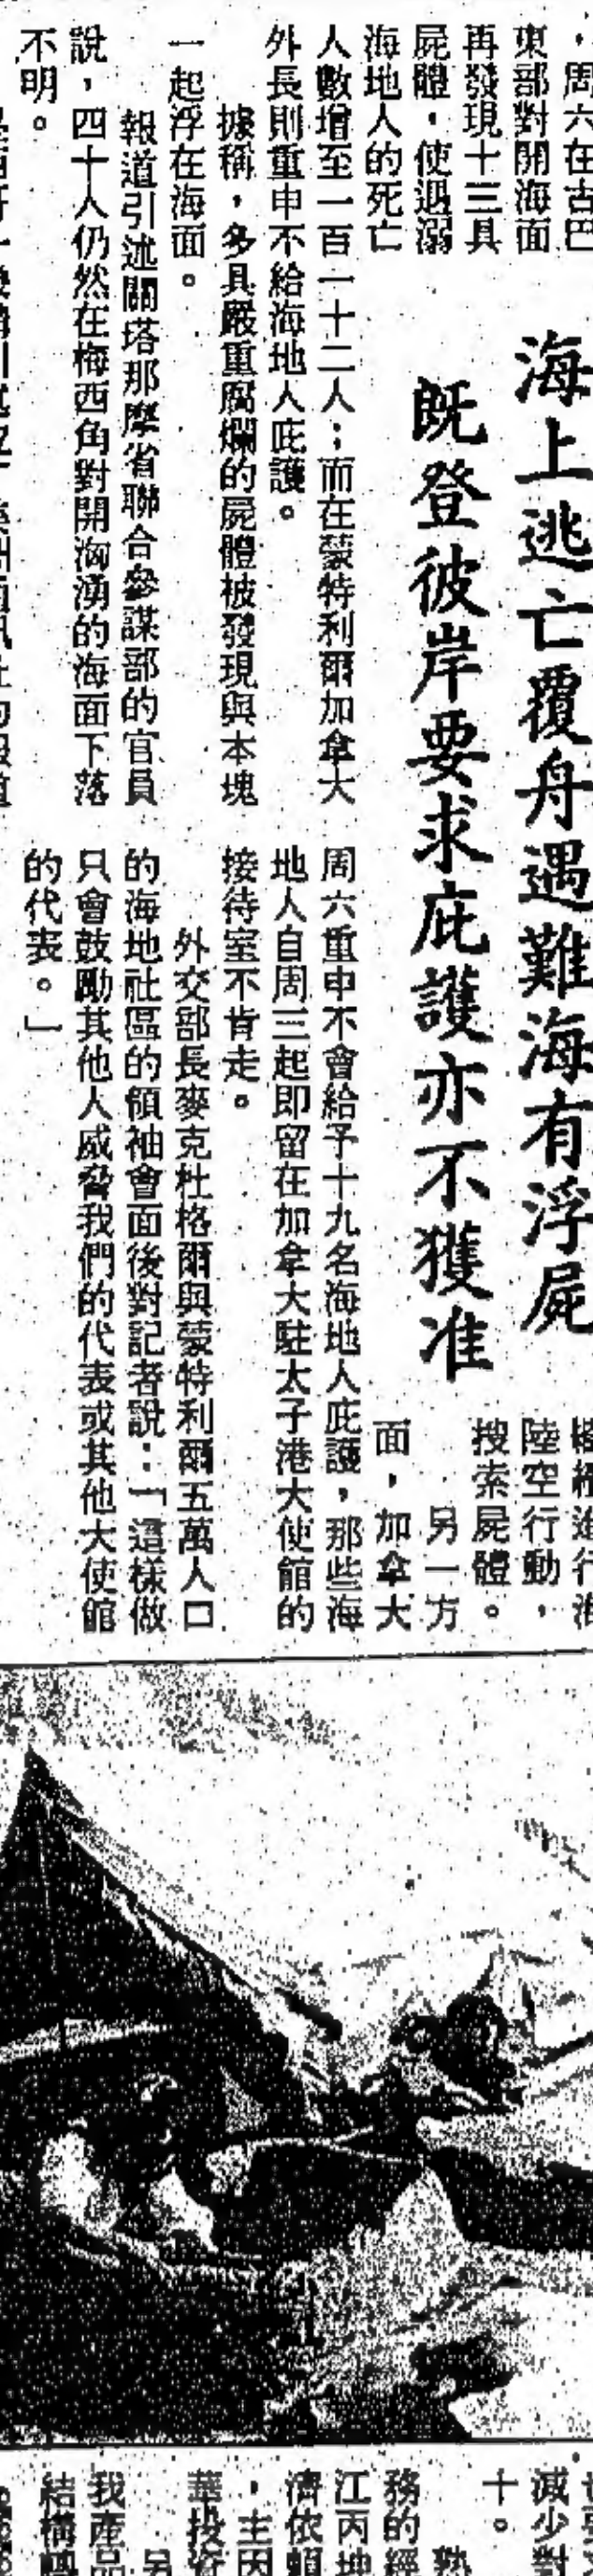 海上逃亡覆舟遇難海有浮屍
既登彼岸要求庇護亦不獲准
，周六在古巴
東部對開海面
再發現十三具
屍體，使遇溺
海地人的死亡
人數增至一百一十二人；而在蒙特利爾加拿大
外長則重申不給海地人庇護。
據稱，多具嚴重腐爛的屍體被發現與本塊
一起浮在海面。
報道引述關塔那摩省聯合參謀部的官員
說，四十人仍然在梅西角對開洶湧的海面下落
不明。
繼續進行海
陸空行動，
搜索屍體。
另一方
面，加拿大
周六重申不會給予十九名海地人庇護，那些海
地人自周三起即留在加拿大駐太子港大使館的
接待室不肯走。
外交部長麥克杜格爾與蒙特利爾五萬人口
的海地社區的領袖會面後對記者說：「這樣做
只會鼓勵其他人威脅我們的代表或其他大使館
的代表。」
減少對
十。
務的經
江丙坤
濟依賴
，主因
華投資
另
我產品
結構